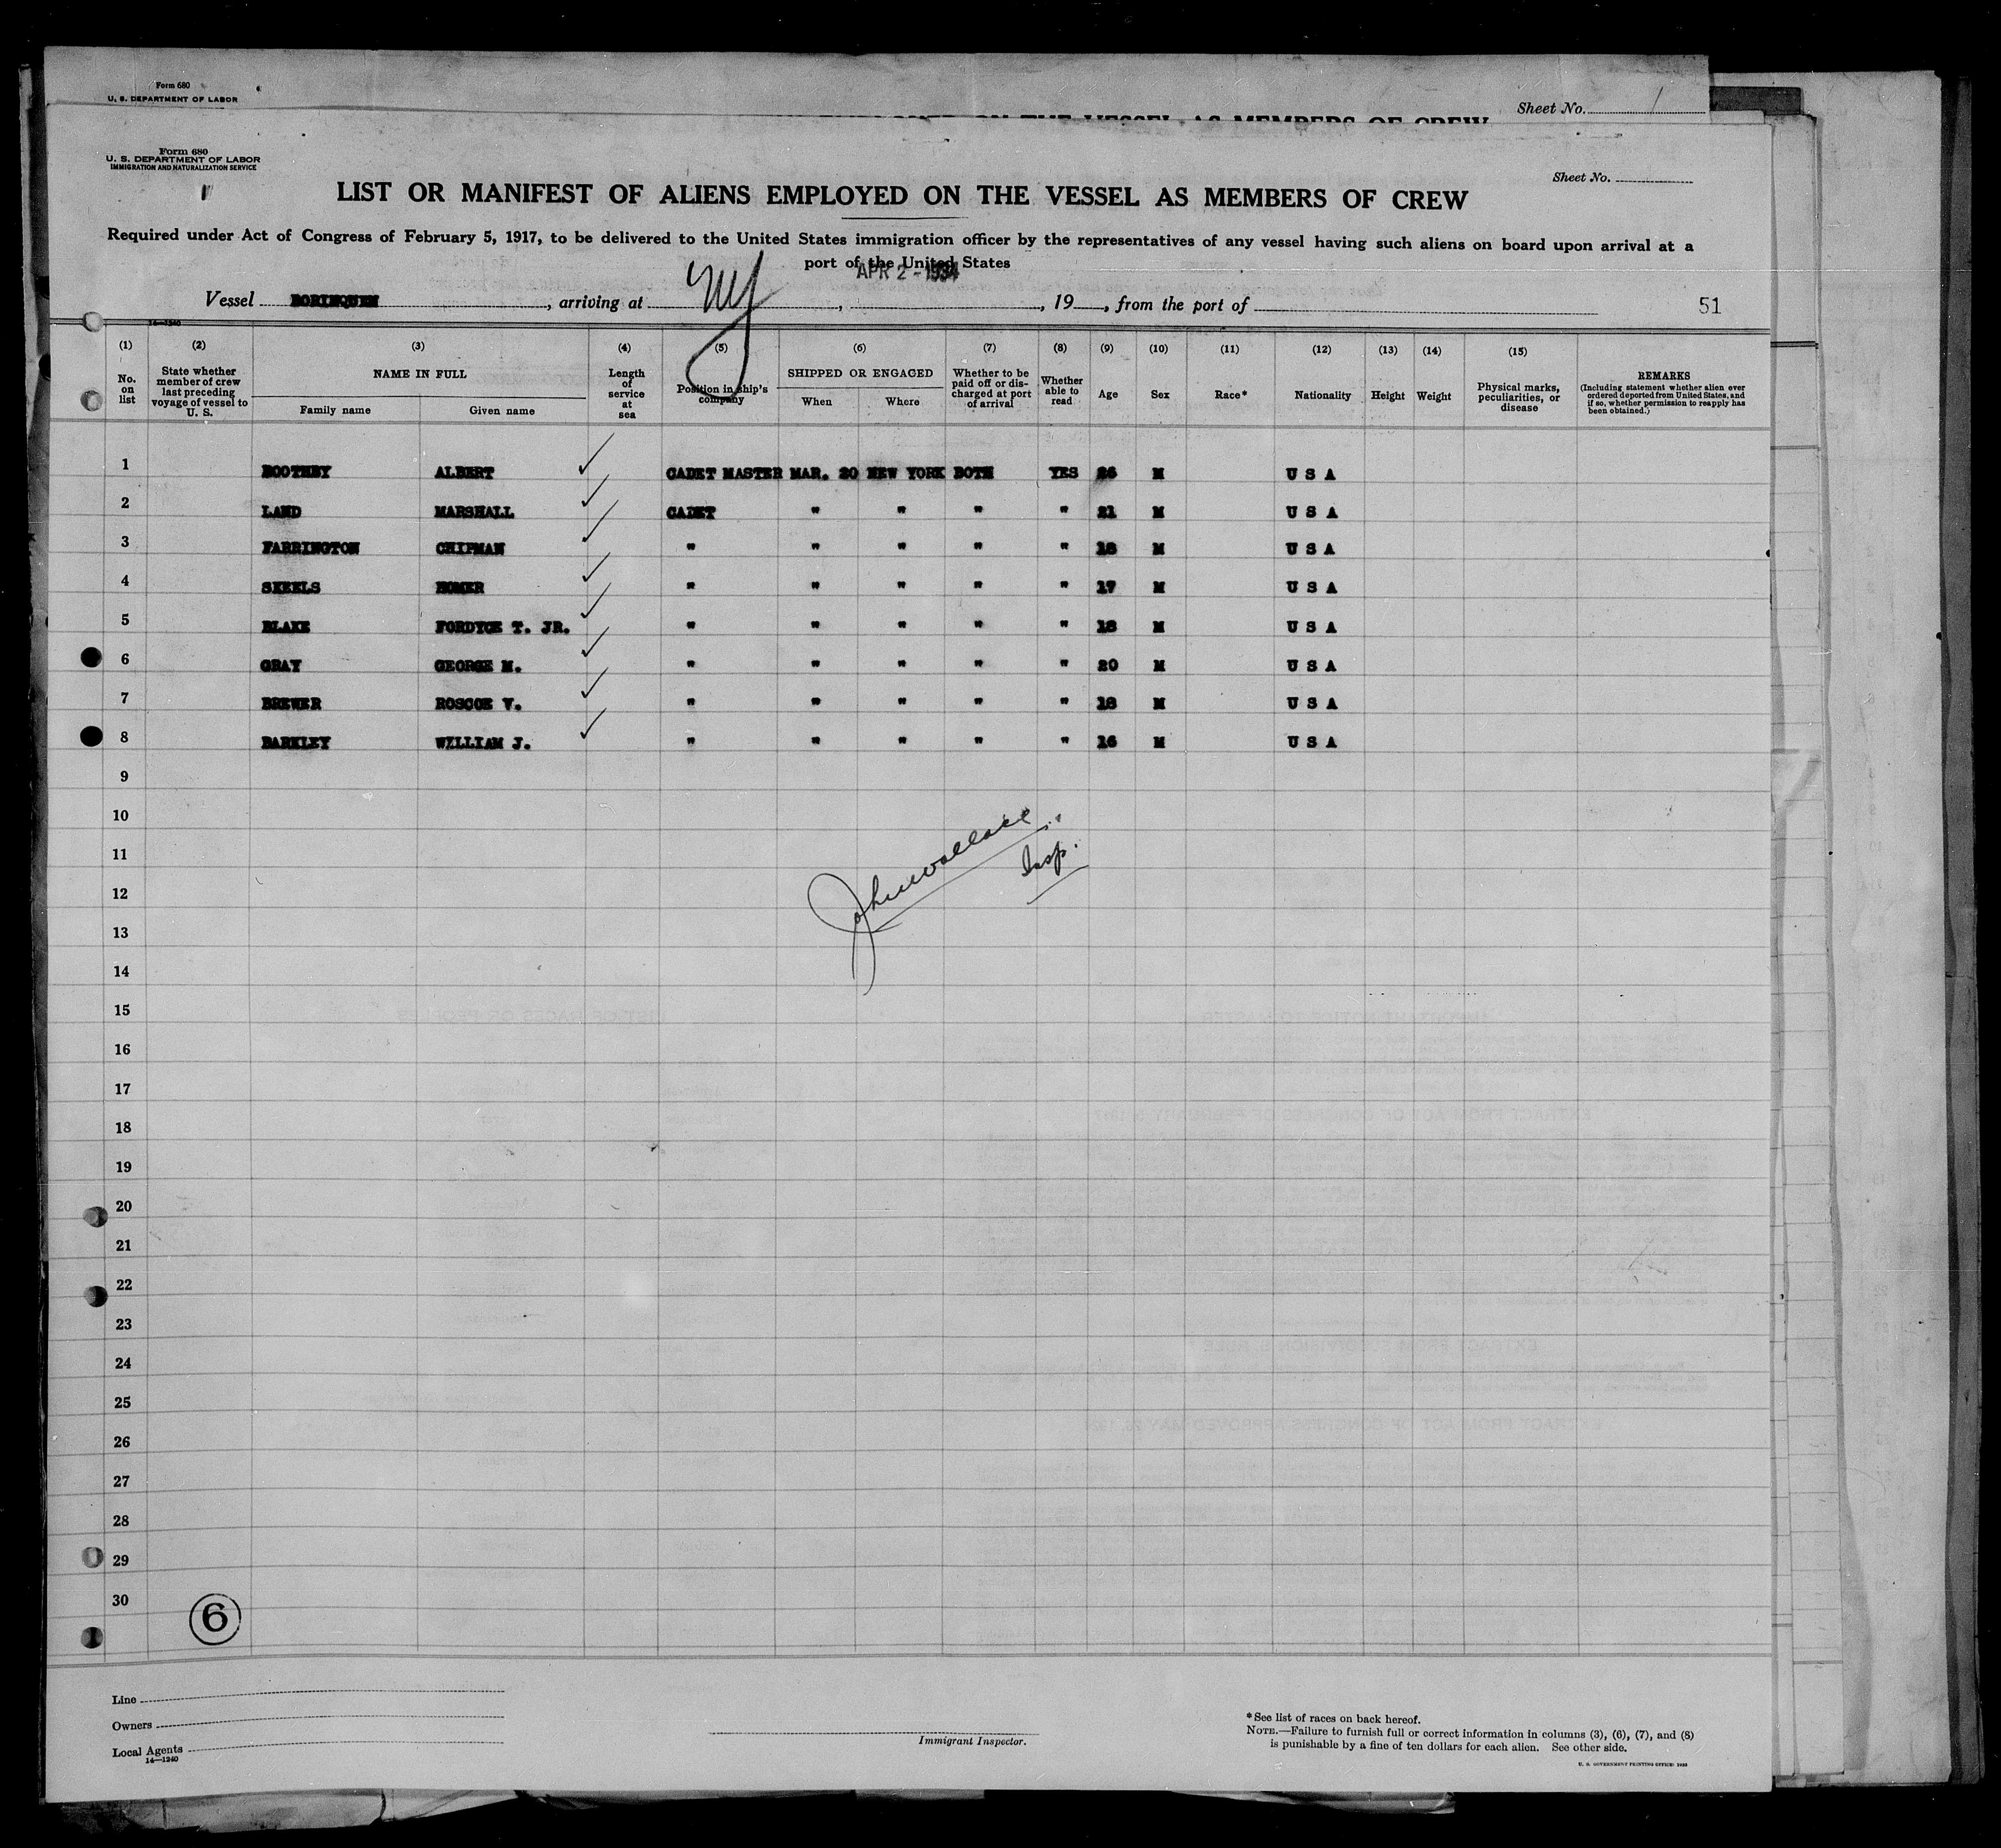 Form 680
U. S. DEPARTMENT OF LABOR
Sheet No. 1
ON THE VESSEL AS MEMBERS OF CREW
Form 680
U. S. DEPARTMENT OF LABOR
IMMIGRATION AND NATURALIZATION SERVICE
Sheet No.
LIST OR MANIFEST OF ALIENS EMPLOYED ON THE VESSEL AS MEMBERS OF CREW
Required under Act of Congress of February 5, 1917, to be delivered to the United States immigration officer by the representatives of any vessel having such aliens on board upon arrival at a
port of the United States
APR 2 - 1934
Vessel BORINQUEN, arriving at NY, , 19 , from the port of 51
14—1240
(1) (2) (3) (4) (5) (6) (7) (8) (9) (10) (11) (12) (13) (14) (15)
No. on list State whether member of crew last preceding voyage of vessel to U. S. NAME IN FULL Family name Given name Length of service at sea Position in ship's company SHIPPED OR ENGAGED When Where Whether to be paid off or discharged at port of arrival Whether able to read Age Sex Race* Nationality Height Weight Physical marks, peculiarities, or disease REMARKS (Including statement whether alien ever ordered deported from United States, and if so, whether permission to reapply has been obtained.)
1 BOOTHBY ALBERT ✓ CADET MASTER MAR. 20 NEW YORK BOTH YES 26 M U S A
2 LAND MARSHALL ✓ CADET " " " " 21 M U S A
3 FARRINGTON CHIPMAN ✓ " " " " " 18 M U S A
4 SKEELS HOMER ✓ " " " " " 17 M U S A
5 BLAKE FORDYCE T. JR. ✓ " " " " " 18 M U S A
6 GRAY GEORGE M. ✓ " " " " " 20 M U S A
7 BREWER ROSCOE V. ✓ " " " " " 18 M U S A
8 BARKLEY WILLIAM J. ✓ " " " " " 16 M U S A
9
10
11
12
13
14
15
16
17
18
19
20
21
22
23
24
25
26
27
28
29
30
John Wallace
Insp.
6
Line
Owners
Local Agents
14—1240
Immigrant Inspector.
* See list of races on back hereof.
NOTE.—Failure to furnish full or correct information in columns (3), (6), (7), and (8)
is punishable by a fine of ten dollars for each alien. See other side.
U. S. GOVERNMENT PRINTING OFFICE: 1933